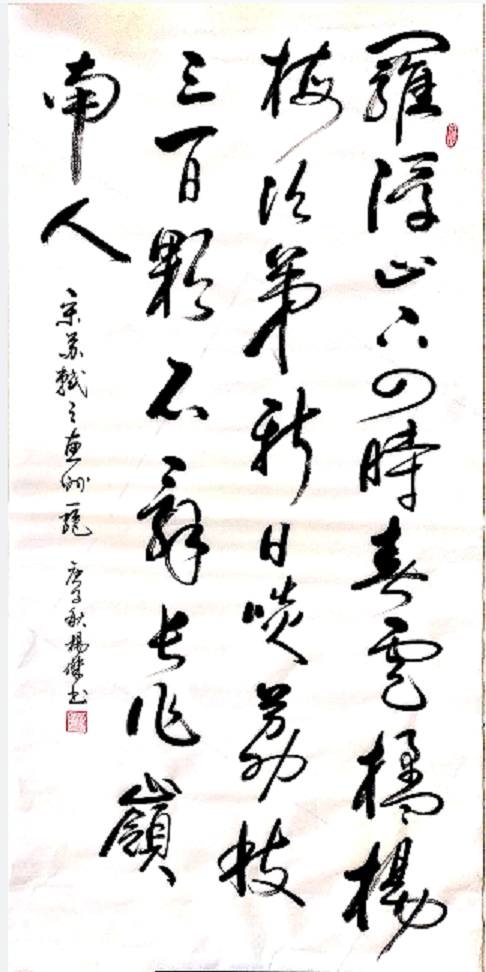 羅浮山下四時春盧橘楊
梅次第新日啖荔枝
三百顆不辭長作嶺
南人
宋苏軾之惠州一绝 庚子秋楊傑书